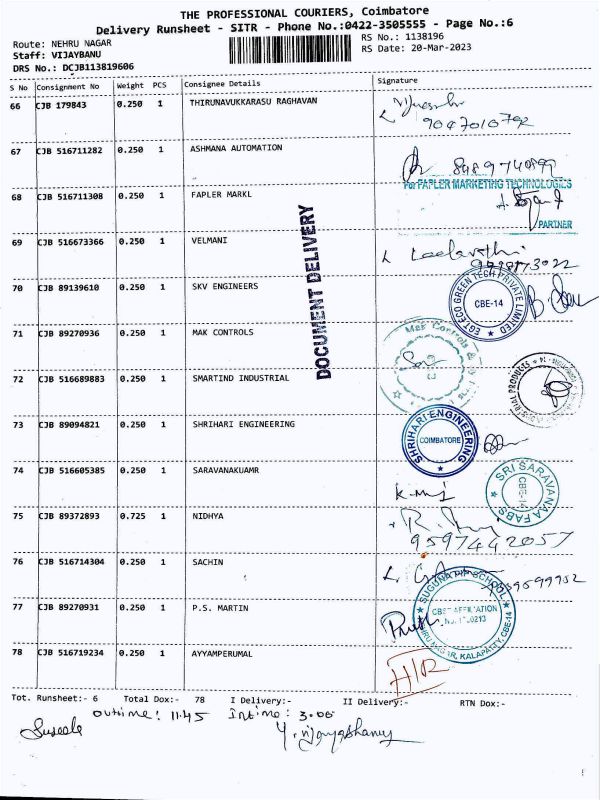 THE PROFESSIONAL COURIERS, Coimbatore
Delivery Runsheet - SITR - Phone No.:0422-3505555 - Page No.:6
Route: NEHRU NAGAR
RS No.: 1138196
Staff: VIJAYBANU
RS Date: 20-Mar-2023
DRS No.: DCJB113819606
S No Consignment No Weight PCS Consignee Details Signature
66 CJB 179843 0.250 1 THIRUNAVUKKARASU RAGHAVAN
9047010792
67 CJB 516711282 0.250 1 ASHMANA AUTOMATION
8489740899
For FAPLER MARKETING TECHNOLOGIES
68 CJB 516711308 0.250 1 FAPLER MARKL
PARTNER
69 CJB 516673366 0.250 1 VELMANI
Leelavathi
70 CJB 89139610 0.250 1 SKV ENGINEERS
GREEN TECH PRIVATE LIMITED
CBE-14
DOCUMENT DELIVERY
71 CJB 89270936 0.250 1 MAK CONTROLS
Mak Controls &
72 CJB 516689883 0.250 1 SMARTIND INDUSTRIAL
PRODUCTS
73 CJB 89094821 0.250 1 SHRIHARI ENGINEERING
SHRIHARI ENGINEERING
COIMBATORE
74 CJB 516605385 0.250 1 SARAVANAKUAMR
SRI SARAVANAA FABS
CBE-14
75 CJB 89372893 0.725 1 NIDHYA
9597442057
76 CJB 516714304 0.250 1 SACHIN
77 CJB 89270931 0.250 1 P.S. MARTIN
SUGUNA PIP SCHOOL
CBSE AFFILIATION
KALAPATTY, CBE-14
78 CJB 516719234 0.250 1 AYYAMPERUMAL
H/R
Tot. Runsheet:- 6 Total Dox:- 78 I Delivery:- II Delivery:- RTN Dox:-
outtime: 11.45 Intime: 3.00
Suseela